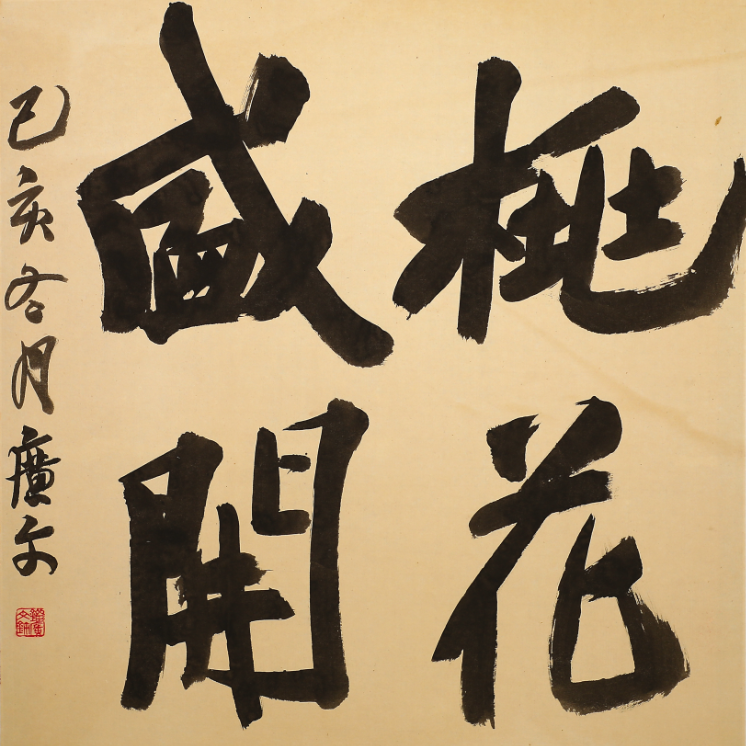 桃花
盛開
己亥冬月廣文